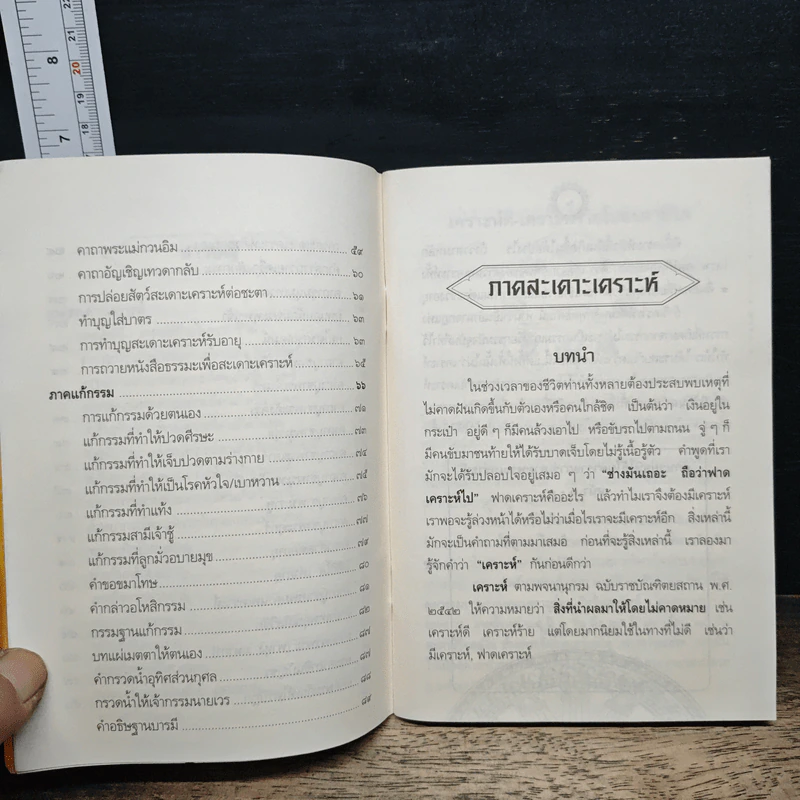 8
7
22
21
20
19
18
17
คาถาพระแม่กวนอิม ๕๙
คาถาอัญเชิญเทวดากลับ ๖๐
การปล่อยสัตว์สะเดาะเคราะห์ต่อชะตา ๖๑
ทำบุญใส่บาตร ๖๓
การทำบุญสะเดาะเคราะห์รับอายุ ๖๓
การถวายหนังสือธรรมะเพื่อสะเดาะเคราะห์ ๖๕
ภาคแก้กรรม ๖๖
การแก้กรรมด้วยตนเอง ๗๑
แก้กรรมที่ทำให้ปวดศีรษะ ๗๓
แก้กรรมที่ทำให้เจ็บปวดตามร่างกาย ๗๔
แก้กรรมที่ทำให้เป็นโรคหัวใจ/เบาหวาน ๗๕
แก้กรรมที่ทำแท้ง ๗๖
แก้กรรมสามีเจ้าชู้ ๗๗
แก้กรรมที่ลูกมั่วอบายมุข ๗๙
คำขอขมาโทษ ๘๐
คำกล่าวอโหสิกรรม ๘๑
กรรมฐานแก้กรรม ๘๒
บทแผ่เมตตาให้ตนเอง ๘๗
คำกรวดน้ำอุทิศส่วนกุศล ๘๗
กรวดน้ำให้เจ้ากรรมนายเวร ๘๘
คำอธิษฐานบารมี ๘๙
ภาคสะเดาะเคราะห์
บทนำ
ในช่วงเวลาของชีวิตท่านทั้งหลายต้องประสบพบเหตุที่
ไม่คาดฝันเกิดขึ้นกับตัวเองหรือคนใกล้ชิด เป็นต้นว่า เงินอยู่ใน
กระเป๋า อยู่ดี ๆ ก็มีคนล้วงเอาไป หรือขับรถไปตามถนน จู่ ๆ ก็
มีคนขับมาชนท้ายให้ได้รับบาดเจ็บโดยไม่รู้เนื้อรู้ตัว คำพูดที่เรา
มักจะได้รับปลอบใจอยู่เสมอ ๆ ว่า "ช่างมันเถอะ ถือว่าฟาด
เคราะห์ไป" ฟาดเคราะห์คืออะไร แล้วทำไมเราจึงต้องมีเคราะห์
เราพอจะรู้ล่วงหน้าได้หรือไม่ว่าเมื่อไรเราจะมีเคราะห์อีก สิ่งเหล่านี้
มักจะเป็นคำถามที่ตามมาเสมอ ก่อนที่จะรู้สิ่งเหล่านี้ เราลองมา
รู้จักคำว่า "เคราะห์" กันก่อนดีกว่า
เคราะห์ ตามพจนานุกรม ฉบับราชบัณฑิตยสถาน พ.ศ.
๒๕๔๒ ให้ความหมายว่า สิ่งที่นำผลมาให้โดยไม่คาดหมาย เช่น
เคราะห์ดี เคราะห์ร้าย แต่โดยมากนิยมใช้ในทางที่ไม่ดี เช่นว่า
มีเคราะห์, ฟาดเคราะห์